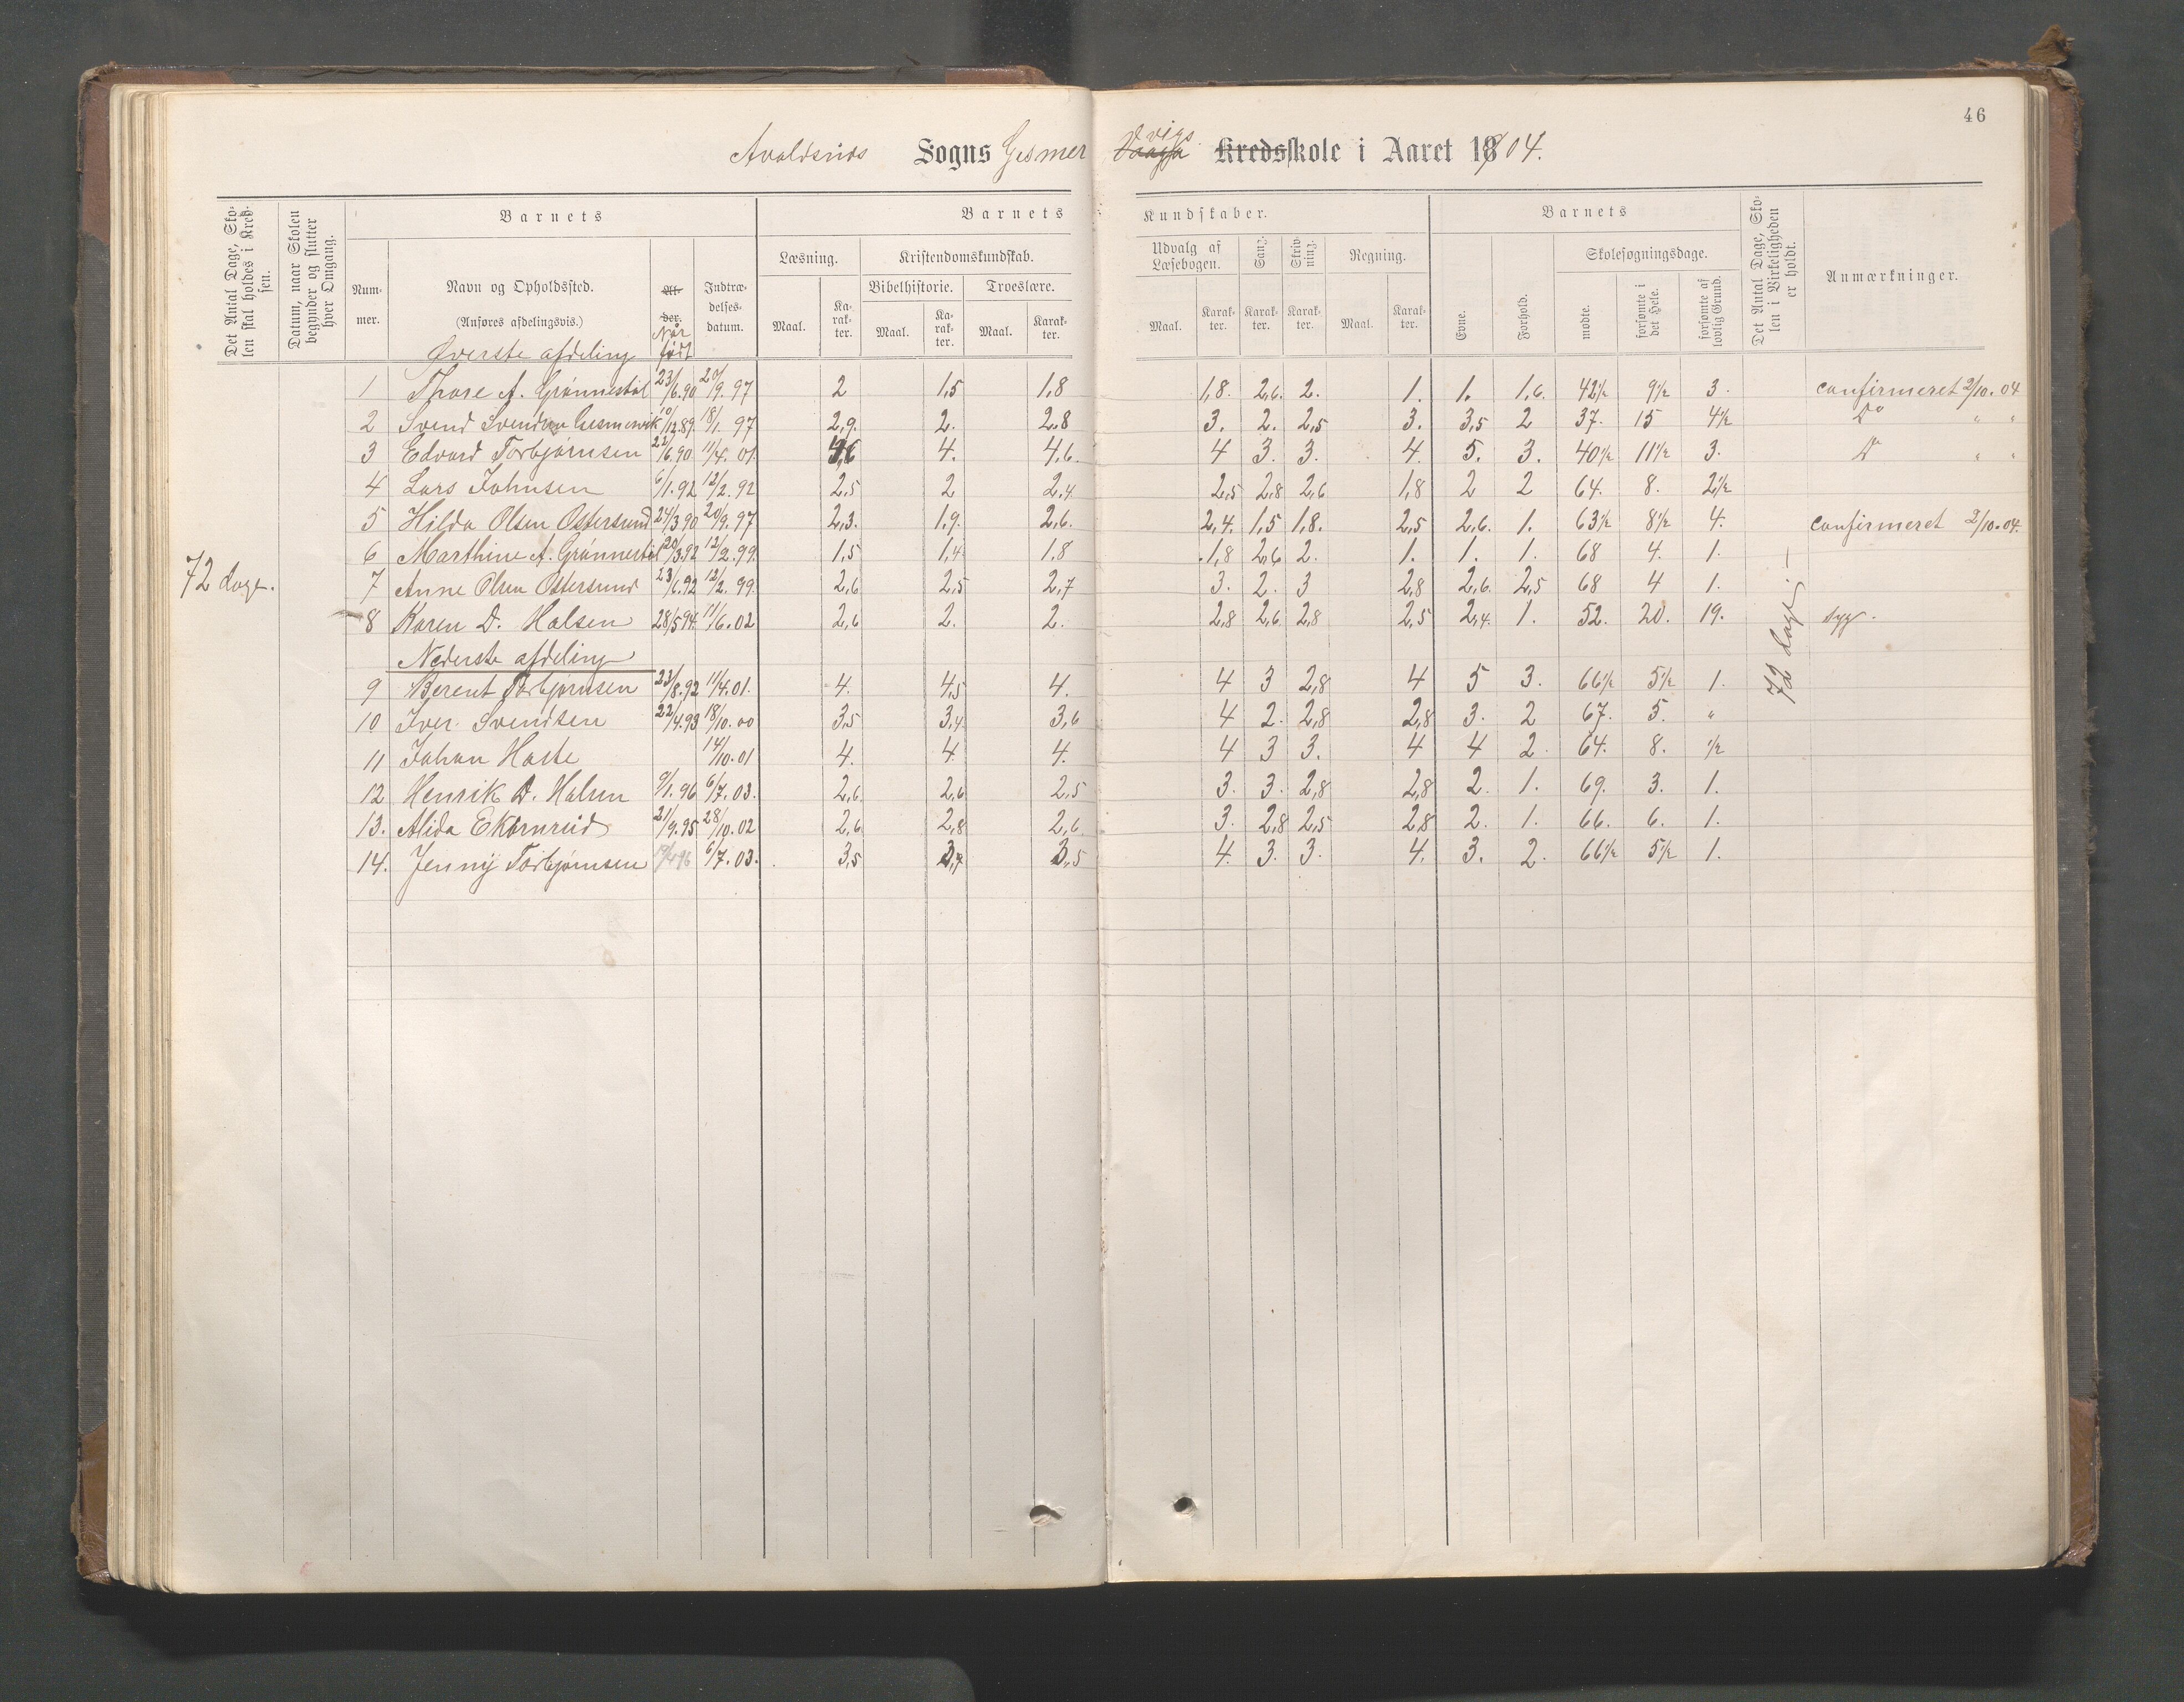 46
Avaldsnæs Sogns Gesmer vigs Kredsskole i Aaret 1904.
Det Antal Dage, Skolen skal holdes i Kredsen.
Datum, naar Skolen begynder og slutter hver Omgang.
Barnets
Barnets Kundskaber.
Barnets
Det Antal Dage, Skolen i Virkeligheden er holdt.
Anmærkninger.
Nummer.
Navn og Opholdssted.
(Anføres afdelingsvis.)
Alder.
Når født
Indtrædelsesdatum.
Læsning.
Kristendomskundskab.
Bibelhistorie.
Troeslære.
Udvalg af Læsebogen.
Sang.
Skrivning.
Regning.
Evne.
Forhold.
Skolesøgningsdage.
Maal. Karakter. Maal. Karakter. Maal. Karakter. Maal. Karakter. Karakter. Karakter. Maal. Karakter.
mødte.
forsømte i det Hele.
forsømte af lovlig Grund.
Øverste afdeling
1 Thore A. Grønnestøl 23/6.90 20/9.97 2 1,5 1,8 1,8. 2,6. 2. 1. 1. 1,6. 42½ 9½ 3. confirmeret 2/10.04
2 Svend Svendsen Gesmervik 10/12.89 18/1.97 2,9. 2. 2,8 3. 2. 2,5 3. 3,5 2 37. 15 4½ Do " "
3 Edvard Torbjørnsen 22/6.90 11/4.01. 4,6 4. 4,6. 4 3. 3. 4. 5. 3. 40½ 11½ 3. Do " "
4 Lars Johnsen 6/1.92 12/2.92 2,5 2 2,4 2,5 2,8 2,6 1,8 2 2 64. 8. 2½
5 Hilda Olsen Østersund 24/3 90 20/9.97 2,3. 1,9. 2,6. 2,4. 1,5 1,8. 2,5 2,6. 1. 63½ 8½ 4. confirmeret 2/10.04.
6 Marthine A. Grønnestøl 20/3.92 12/2.99. 1,5 1,4 1,8 1,8 2,6 2. 1. 1. 1. 68 4. 1.
72 dage.
7 Anne Olsen Østersund 23/6.92 12/2.99. 2,6 2,5 2,7 3. 2. 3 2,8 2,6. 2,5 68 4 1.
8 Karen D. Halsen 28/5 94. 11/6.02 2,6 2. 2. 2,8 2,6 2,8 2,5 2,4. 1. 52. 20. 19. syg.
72 dage.
Nederste afdeling
9 Berent Torbjørnsen 23/8.92 11/4.01. 4. 4,5 4. 4 3 2,8 4 5 3. 66½ 5½ 1.
10 Iver Svendsen 22/4.93 18/10.00 3,5 3,4 3,6 4 2. 2,8 2,8 3. 2 67. 5. "
11 Johan Haste 14/10.01 4. 4. 4. 4 3 3. 4 4 2. 64. 8. ½
12 Henrik D. Halsen 9/1.96 6/7.03. 2,6 2,6 2,5 3. 3. 2,8 2,8 2. 1. 69. 3. 1.
13. Alida Ekornrud 21/9.95 28/10.02 2,6 2,8 2,6 3. 2,8 2,5 2,8 2. 1. 66. 6. 1.
14. Jenny Torbjørnsen 6/7.03. 3,5 3,4 3,5 4. 3. 3. 4. 3. 2. 66½ 5½ 1.